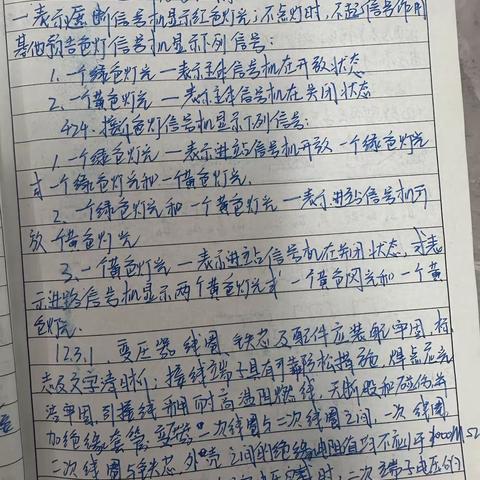 一表示遮断信号机显示红色灯光；不点灯时，不起信号作用
其他预告色灯信号机显示下列信号：
1.一个绿色灯光一表示主体信号机在开放状态
2.一个黄色灯光一表示主体信号机在关闭状态
424.接近色灯信号机显示下列信号：
1.一个绿色灯光一表示进站信号机开放一个绿色灯光
或一个绿色灯光和一个黄色灯光、
2.一个绿色灯光和一个黄色灯光一表示进站信号机开
放一个黄色灯光
3.一个黄色灯光一表示进站信号机在关闭状态，或表
示进路信号机显示两个黄色灯光或一个黄色闪光和一个黄
色灯光、
12.3.1、变压器线圈、铁芯及配件应装配牢固，标
志及文字清晰；接线端子具有可靠防松措施，焊点应光
洁牢固，引接线采用耐高温阻燃线，无断股和破伤并
加绝缘套管，一次线圈与二次线圈之间，一次线圈、
二次线圈与铁芯、外壳之间的绝缘电阻值均不应小于1000MΩ
时，二次端子电压的